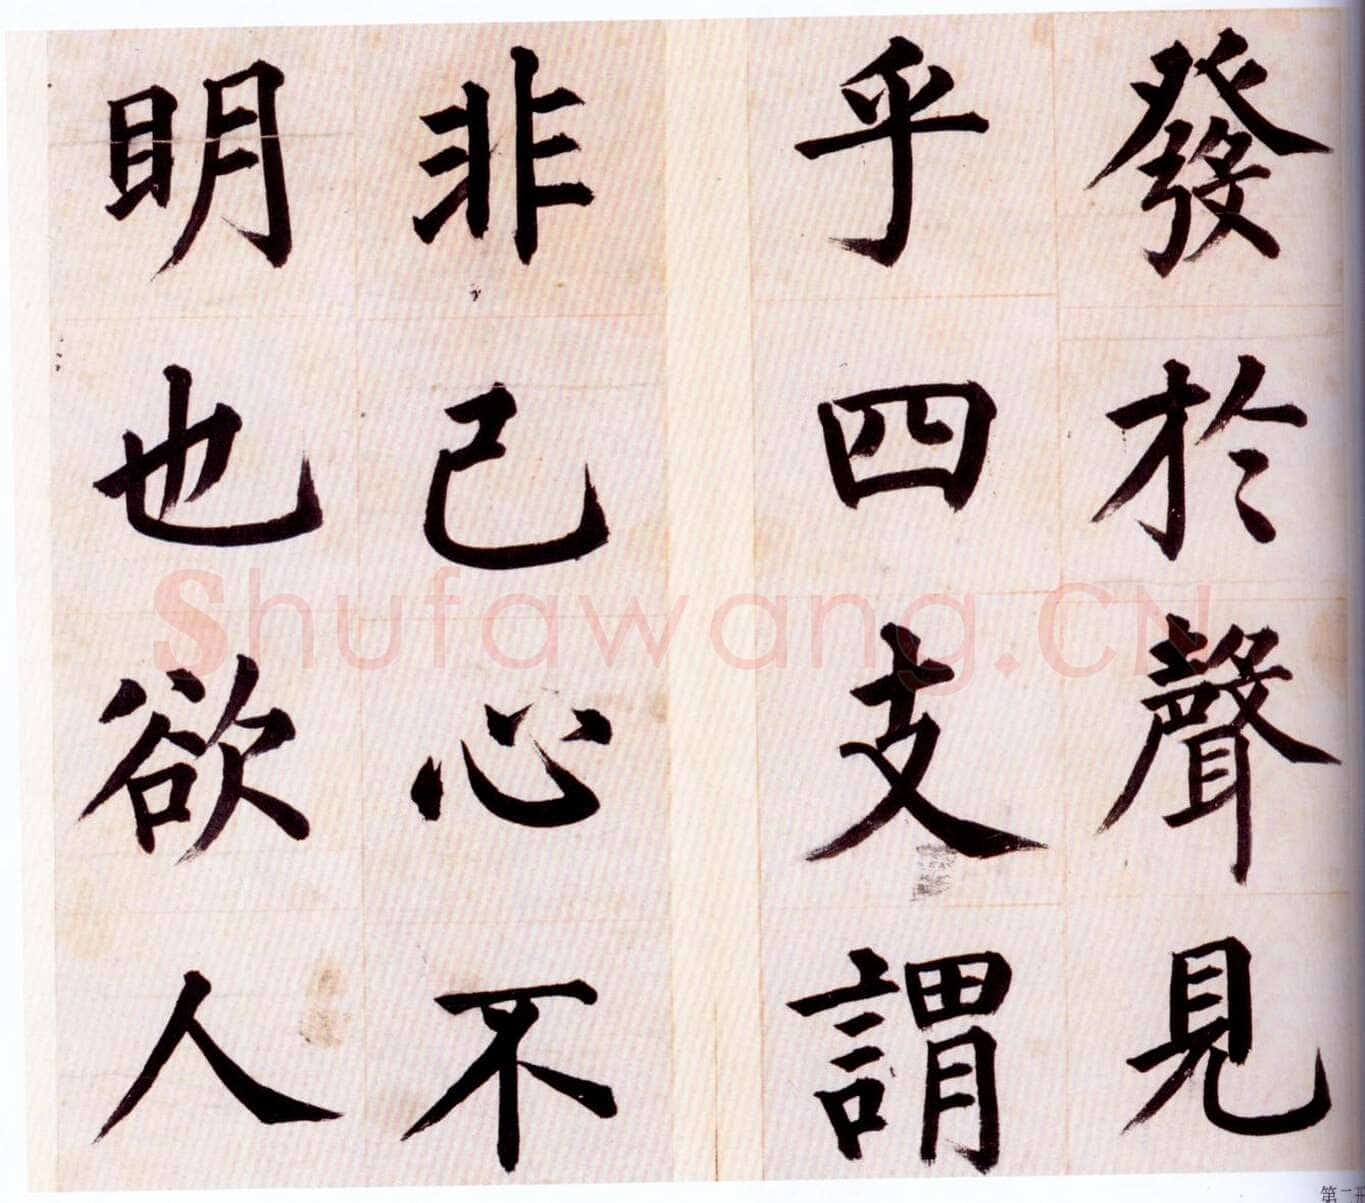 發於聲見
乎四支謂
非己心不
明也欲人
Shufawang.CN
第二